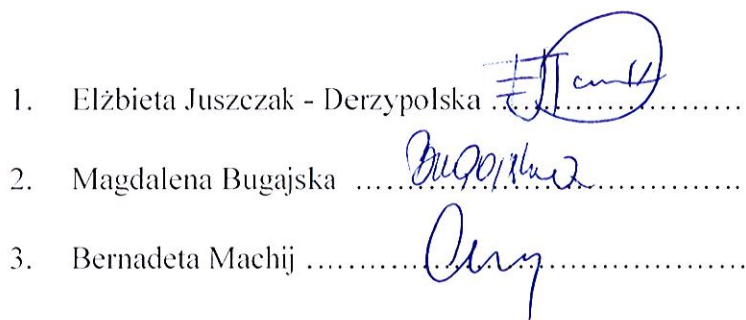 1. Elżbieta Juszczak - Derzypolska ..........................
2. Magdalena Bugajska ..........................................
3. Bernadeta Machij ................................................